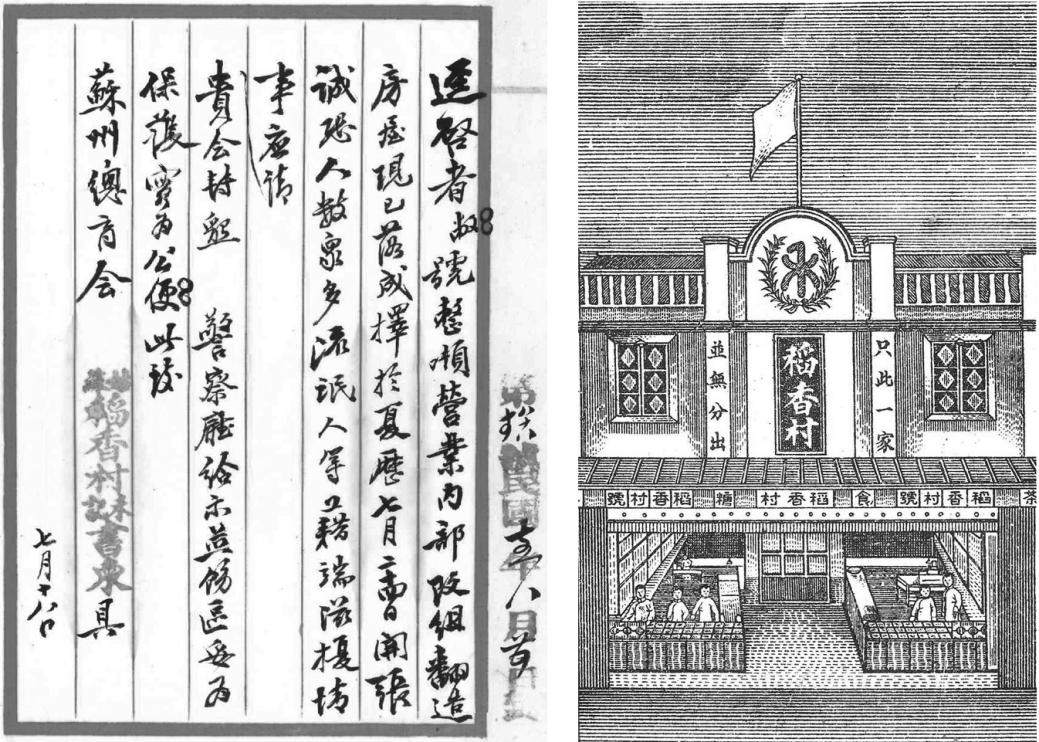 逕啓者敝號整頓營業內部改組翻造
房屋現已落成擇於夏歷七月日開張
誠恐人數衆多流氓人等藉端滋擾情
事應請
貴会懇 警察廳給示並飭區妥為
保護實為公便此致
蘇州總商会
稻香村禾記書柬 具
七月十八日
只此一家
稻香村
並無分出
茶 稻香村號 食 稻香村 糖 稻香村號